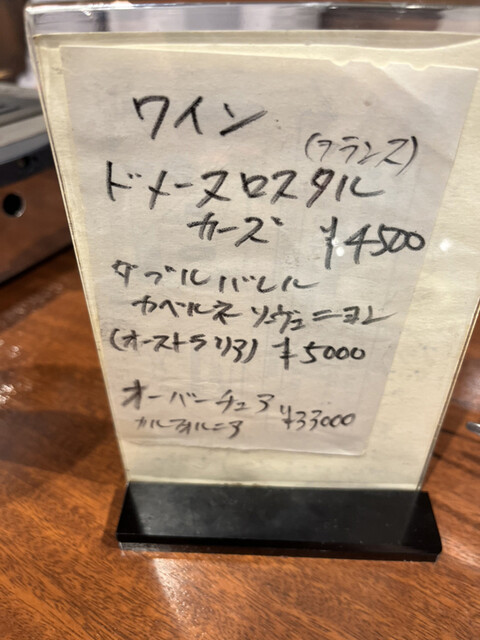 ワイン
(フランス)
ドメーヌロスタル
カーズ ¥4500
ダブルバレル
カベルネソーヴィニヨン
(オーストラリア) ¥5000
オーバーチュア
カルフォルニア ¥33000